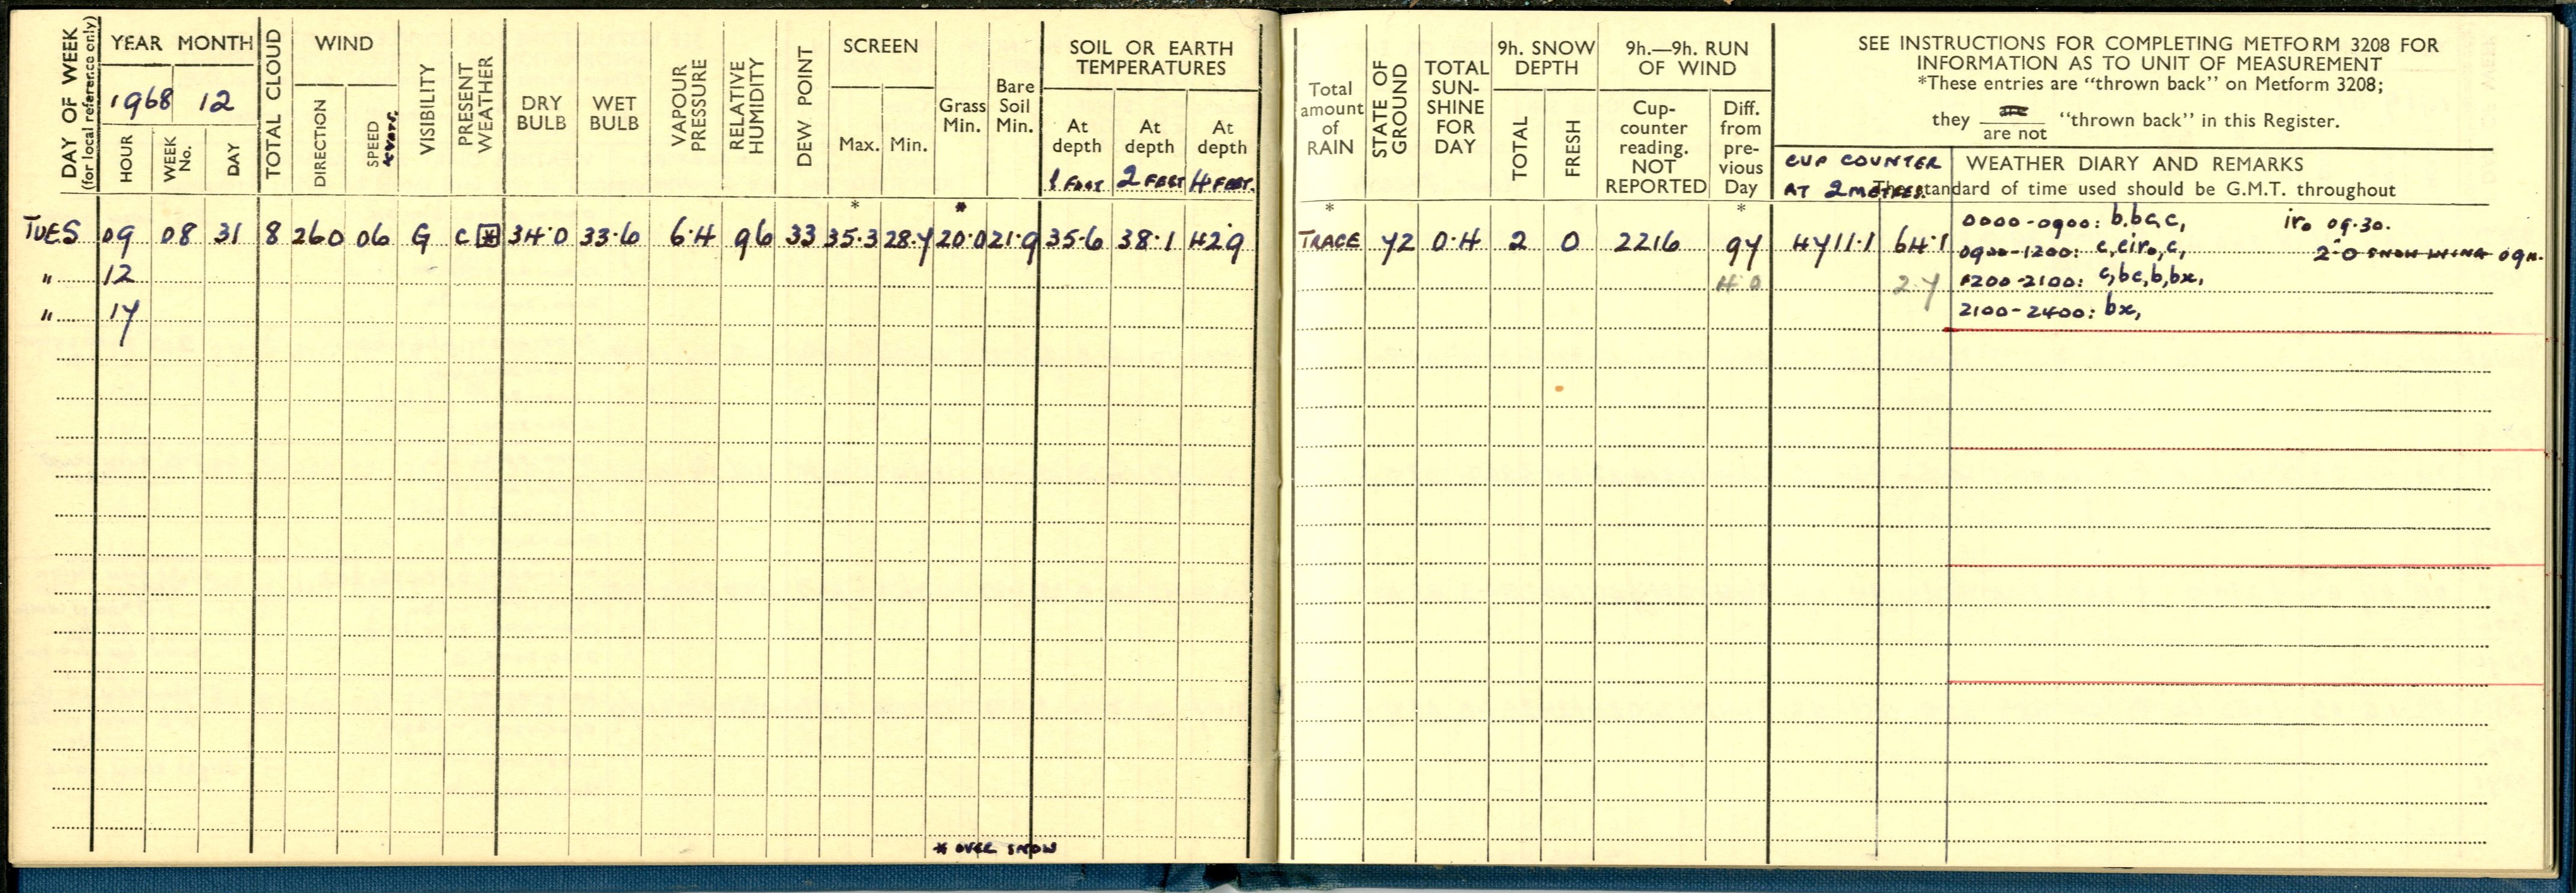 DAY OF WEEK
(for local reference only)
YEAR MONTH
1968 12
HOUR
WEEK No.
DAY
TOTAL CLOUD
WIND
DIRECTION
SPEED
VISIBILITY
PRESENT WEATHER
DRY BULB
WET BULB
VAPOUR PRESSURE
RELATIVE HUMIDITY
DEW POINT
SCREEN
Max. Min.
Grass Min.
Bare Soil Min.
SOIL OR EARTH
TEMPERATURES
At depth At depth At depth
1 FOOT 2 FEET 4 FEET.
* *
TUES 09 08 31 8 260 06 G c 34.0 33.6 6.4 96 33 35.3 28.7 20.0 21.9 35.6 38.1 42.9
" 12
" 17
* OVER SNOW
Total amount of RAIN
STATE OF GROUND
TOTAL SUN-SHINE FOR DAY
9h. SNOW DEPTH
TOTAL
FRESH
9h.—9h. RUN OF WIND
Cup-counter reading. NOT REPORTED
Diff. from pre-vious Day
SEE INSTRUCTIONS FOR COMPLETING METFORM 3208 FOR
INFORMATION AS TO UNIT OF MEASUREMENT
*These entries are "thrown back" on Metform 3208;
they are not "thrown back" in this Register.
CUP COUNTER
AT 2 METRES.
WEATHER DIARY AND REMARKS
The standard of time used should be G.M.T. throughout
* *
TRACE 72 0.4 2 0 2216 97 4711.1 64.1
4.0 2.7
0000-0900: b.bc,c, ir₀ 09.30.
0900-1200: c,cir₀,c,
1200-2100: c,bc,b,bx,
2100-2400: bx,